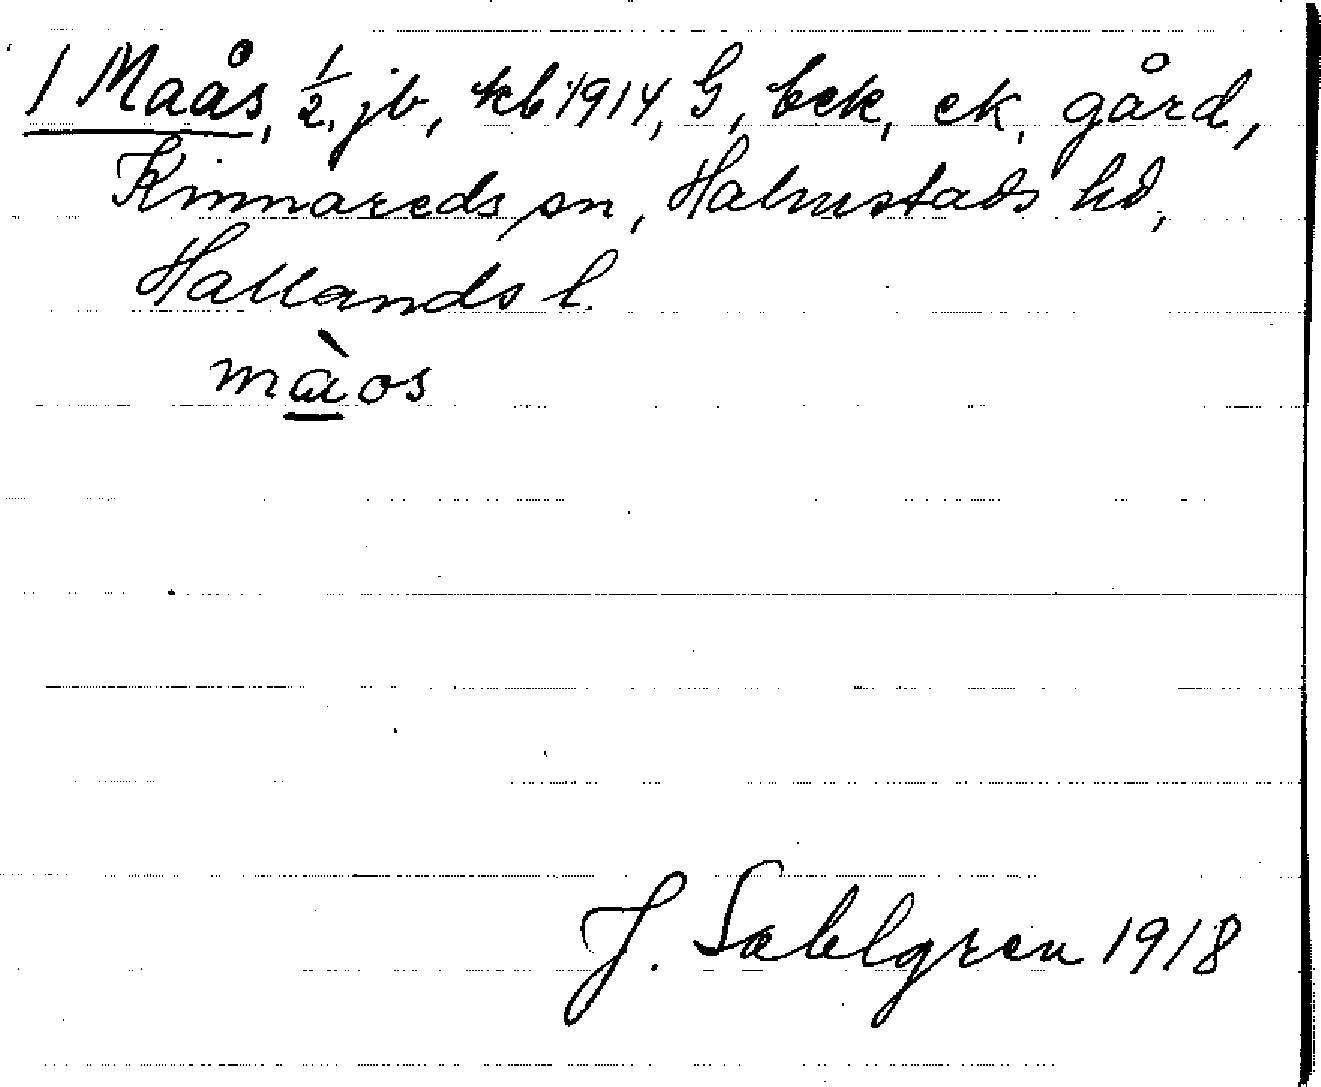 1 Maås, 1/2, jb, kb 1914, G, bek, ek, gård,
Kinnareds sn, Halmstads hd,
Hallands l.
màos
J. Sahlgren 1918